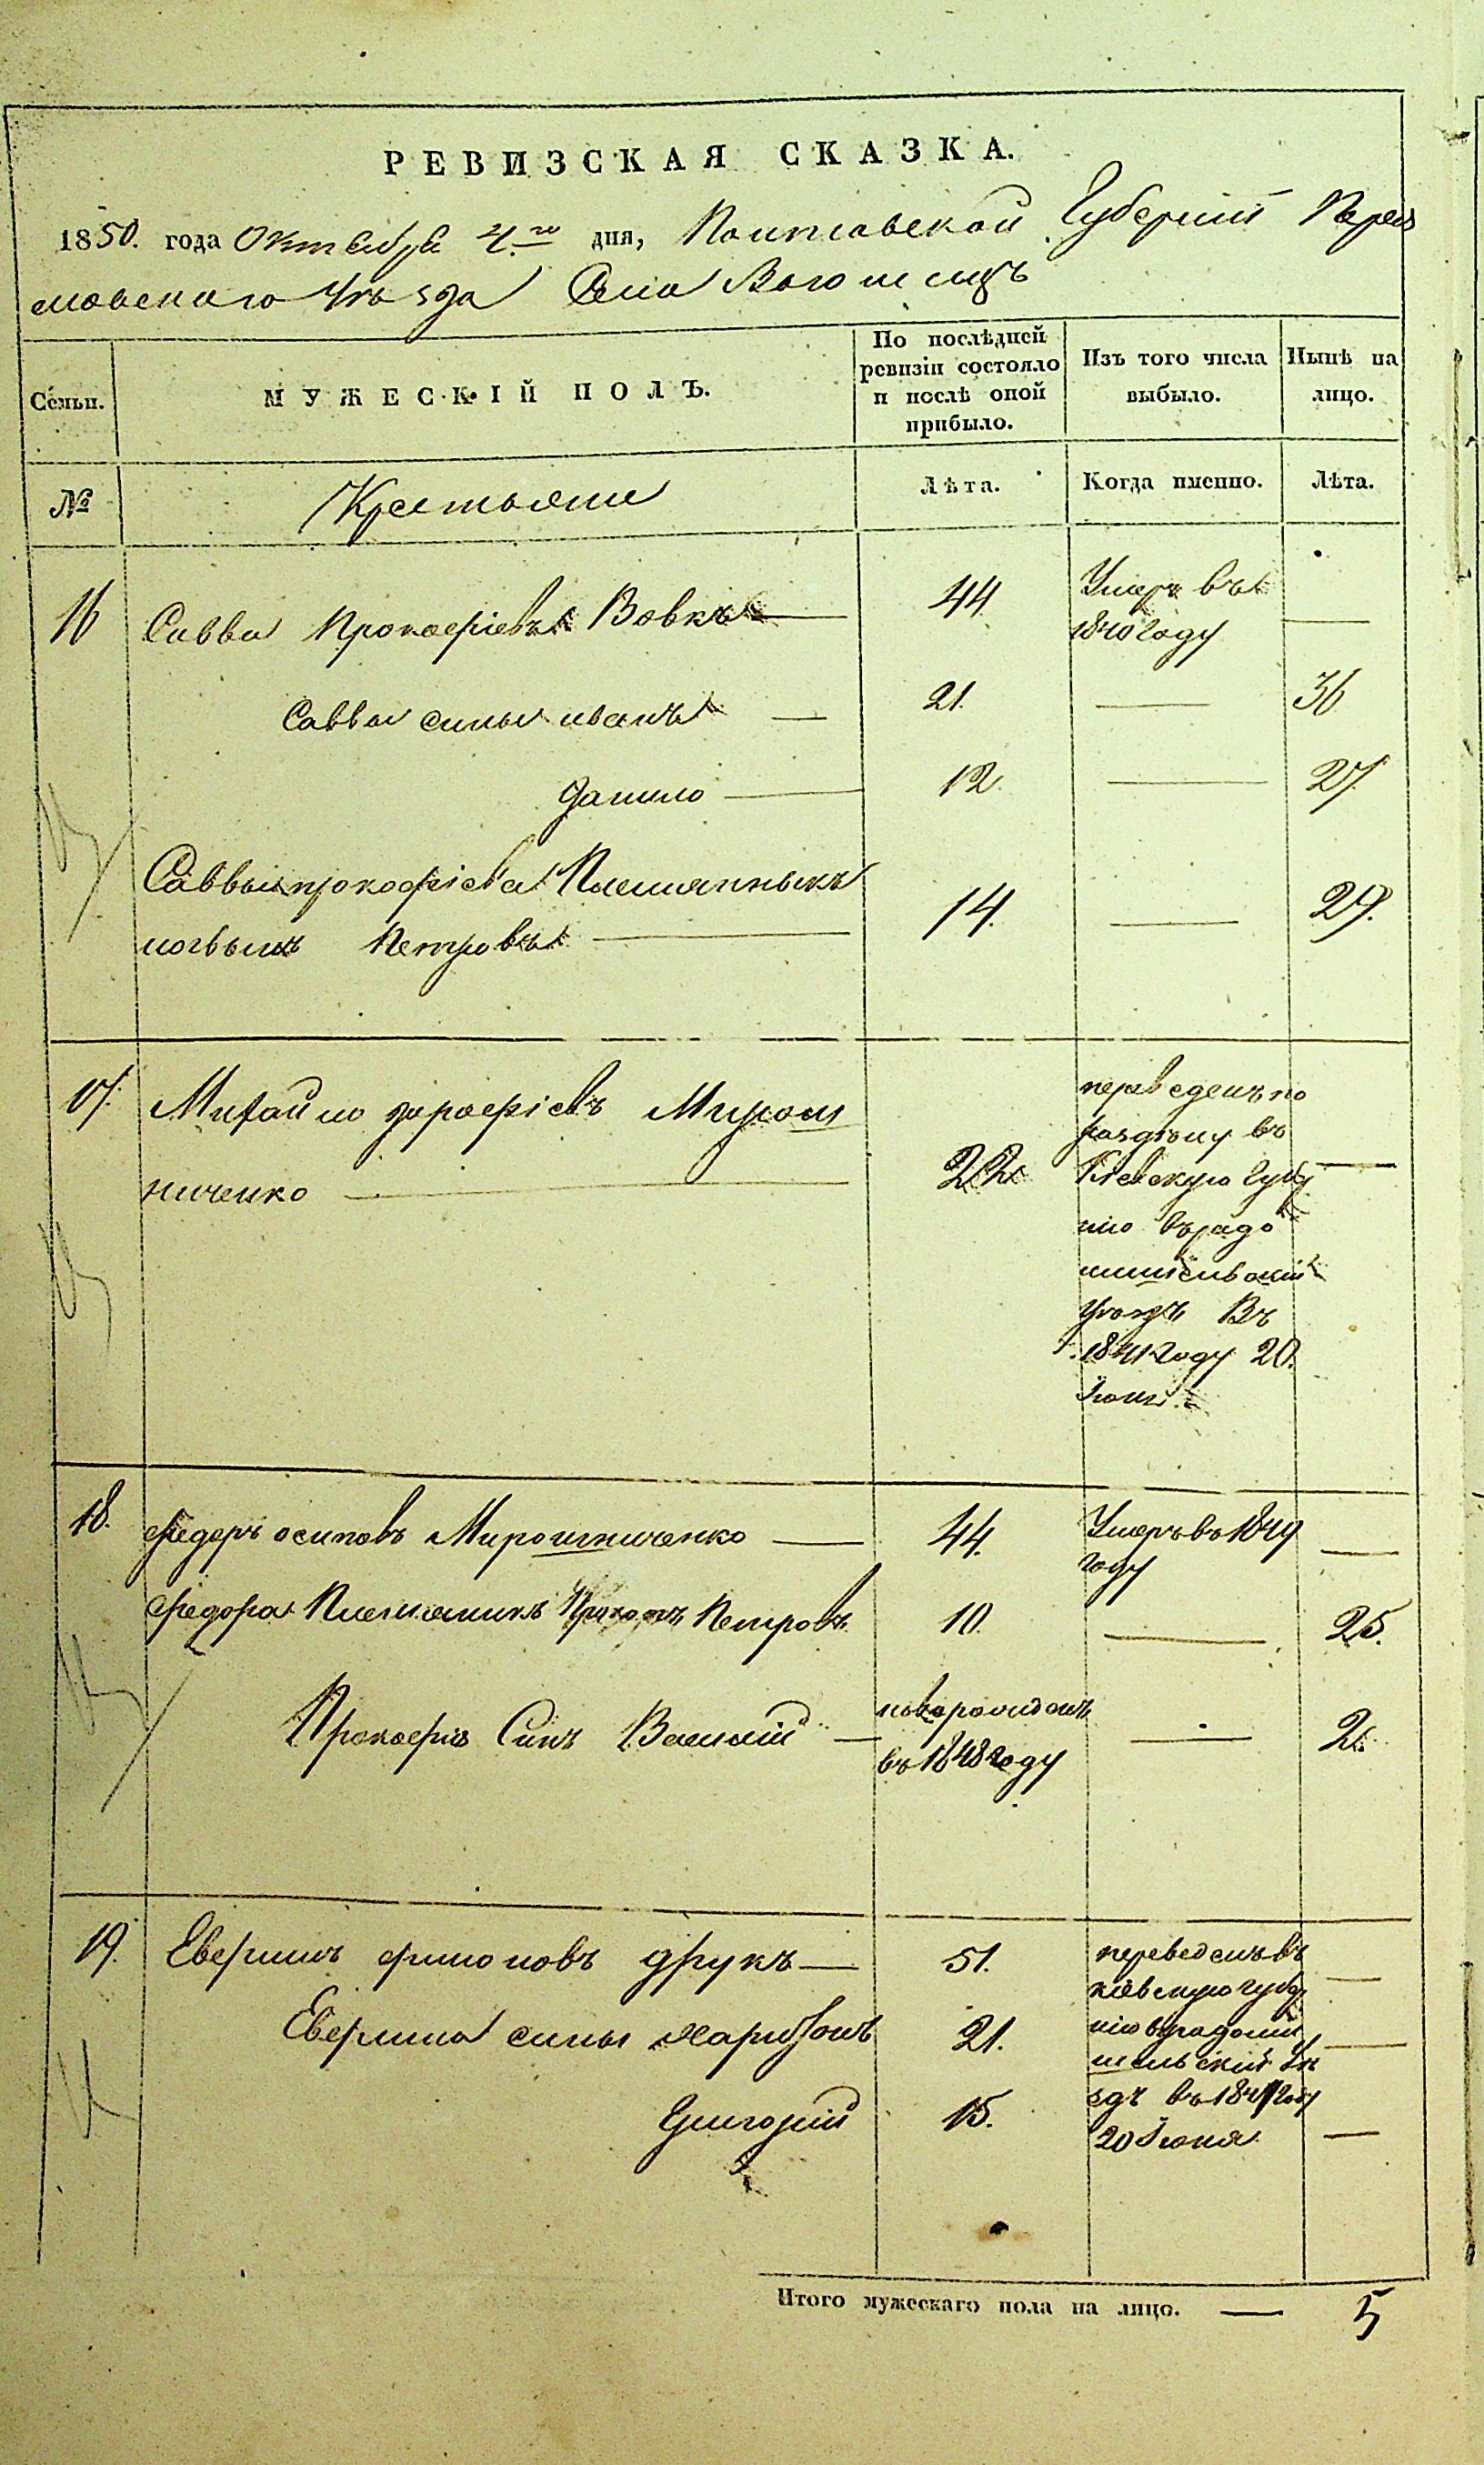 РЕВИЗСКАЯ СКАЗКА.
1850. года Октября 4.го дня, Полтавской Губерніи Перея
славскаго Уѣзда Села
Семьи. МУЖЕСКІЙ ПОЛЪ. По послѣдней ревизіи состояло и послѣ оной прибыло. Изъ того числа выбыло. Нынѣ на лицо.
№ Крестьяне Лѣта. Когда именно. Лѣта.
16 Савва Прокофіевъ Вовкъ — 44 Умеръ въ
1840 году —
Саввы сины иванъ — 21. — 36
Данило — 12. — 27.
Саввы прокофіева Племянныкъ
логвынъ Петровъ — 14. — 29.
17. Михайло дорофіевъ Мирош
ниченко — 22
переведенъ по
раздѣлу въ
Кіевскую Губер
нію въ радо
мишельскій
Уѣздъ Въ
1841 году 20.
Іюня. —
18. Федоръ осиповъ Мирошниченко — 44. Умеръ въ 1849
году —
Федора Племяникъ Прокофъ Петровъ 10. — 25.
Прокофія Синъ Василій — новорожденъ
въ 1848 году — 2.
19. друкъ — 51. переведенъ въ
кіевскую губер —
сины Харитонъ 21. нію въ радоми
шельскій Уѣ —
Григорій 15. здъ въ 1841 году
20 Іюня —
Итого мужескаго пола на лицо. — 5